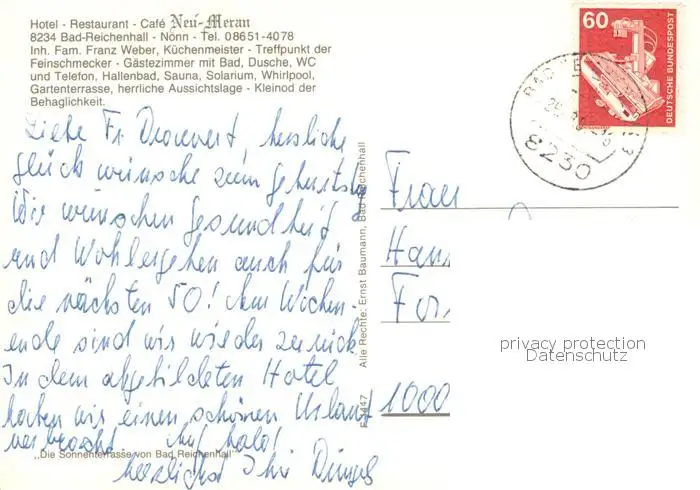 Hotel - Restaurant - Café Neu-Meran
8234 Bad-Reichenhall - Nonn - Tel. 08651-4078
Inh. Fam. Franz Weber, Küchenmeister - Treffpunkt der
Feinschmecker - Gästezimmer mit Bad, Dusche, WC
und Telefon, Hallenbad, Sauna, Solarium, Whirlpool,
Gartenterrasse, herrliche Aussichtslage - Kleinod der
Behaglichkeit.
Liebe Fr. herzliche
Glückwünsche zum Geburtst
Wir wünschen Gesundheit
und Wohlergehen auch für
die nächsten 50! Am Wochen-
ende sind wir wieder zurück
In dem abgebildeten Hotel
haben wir einen schönen Urlaub
verbracht. Auf bald!
herzlichst Ihre
„Die Sonnenterrasse von Bad Reichenhall"
Alle Rechte: Ernst Baumann, Bad Reichenhall
60
DEUTSCHE BUNDESPOST
BAD
8230
Frau
Han
For
1000
privacy protection
Datenschutz